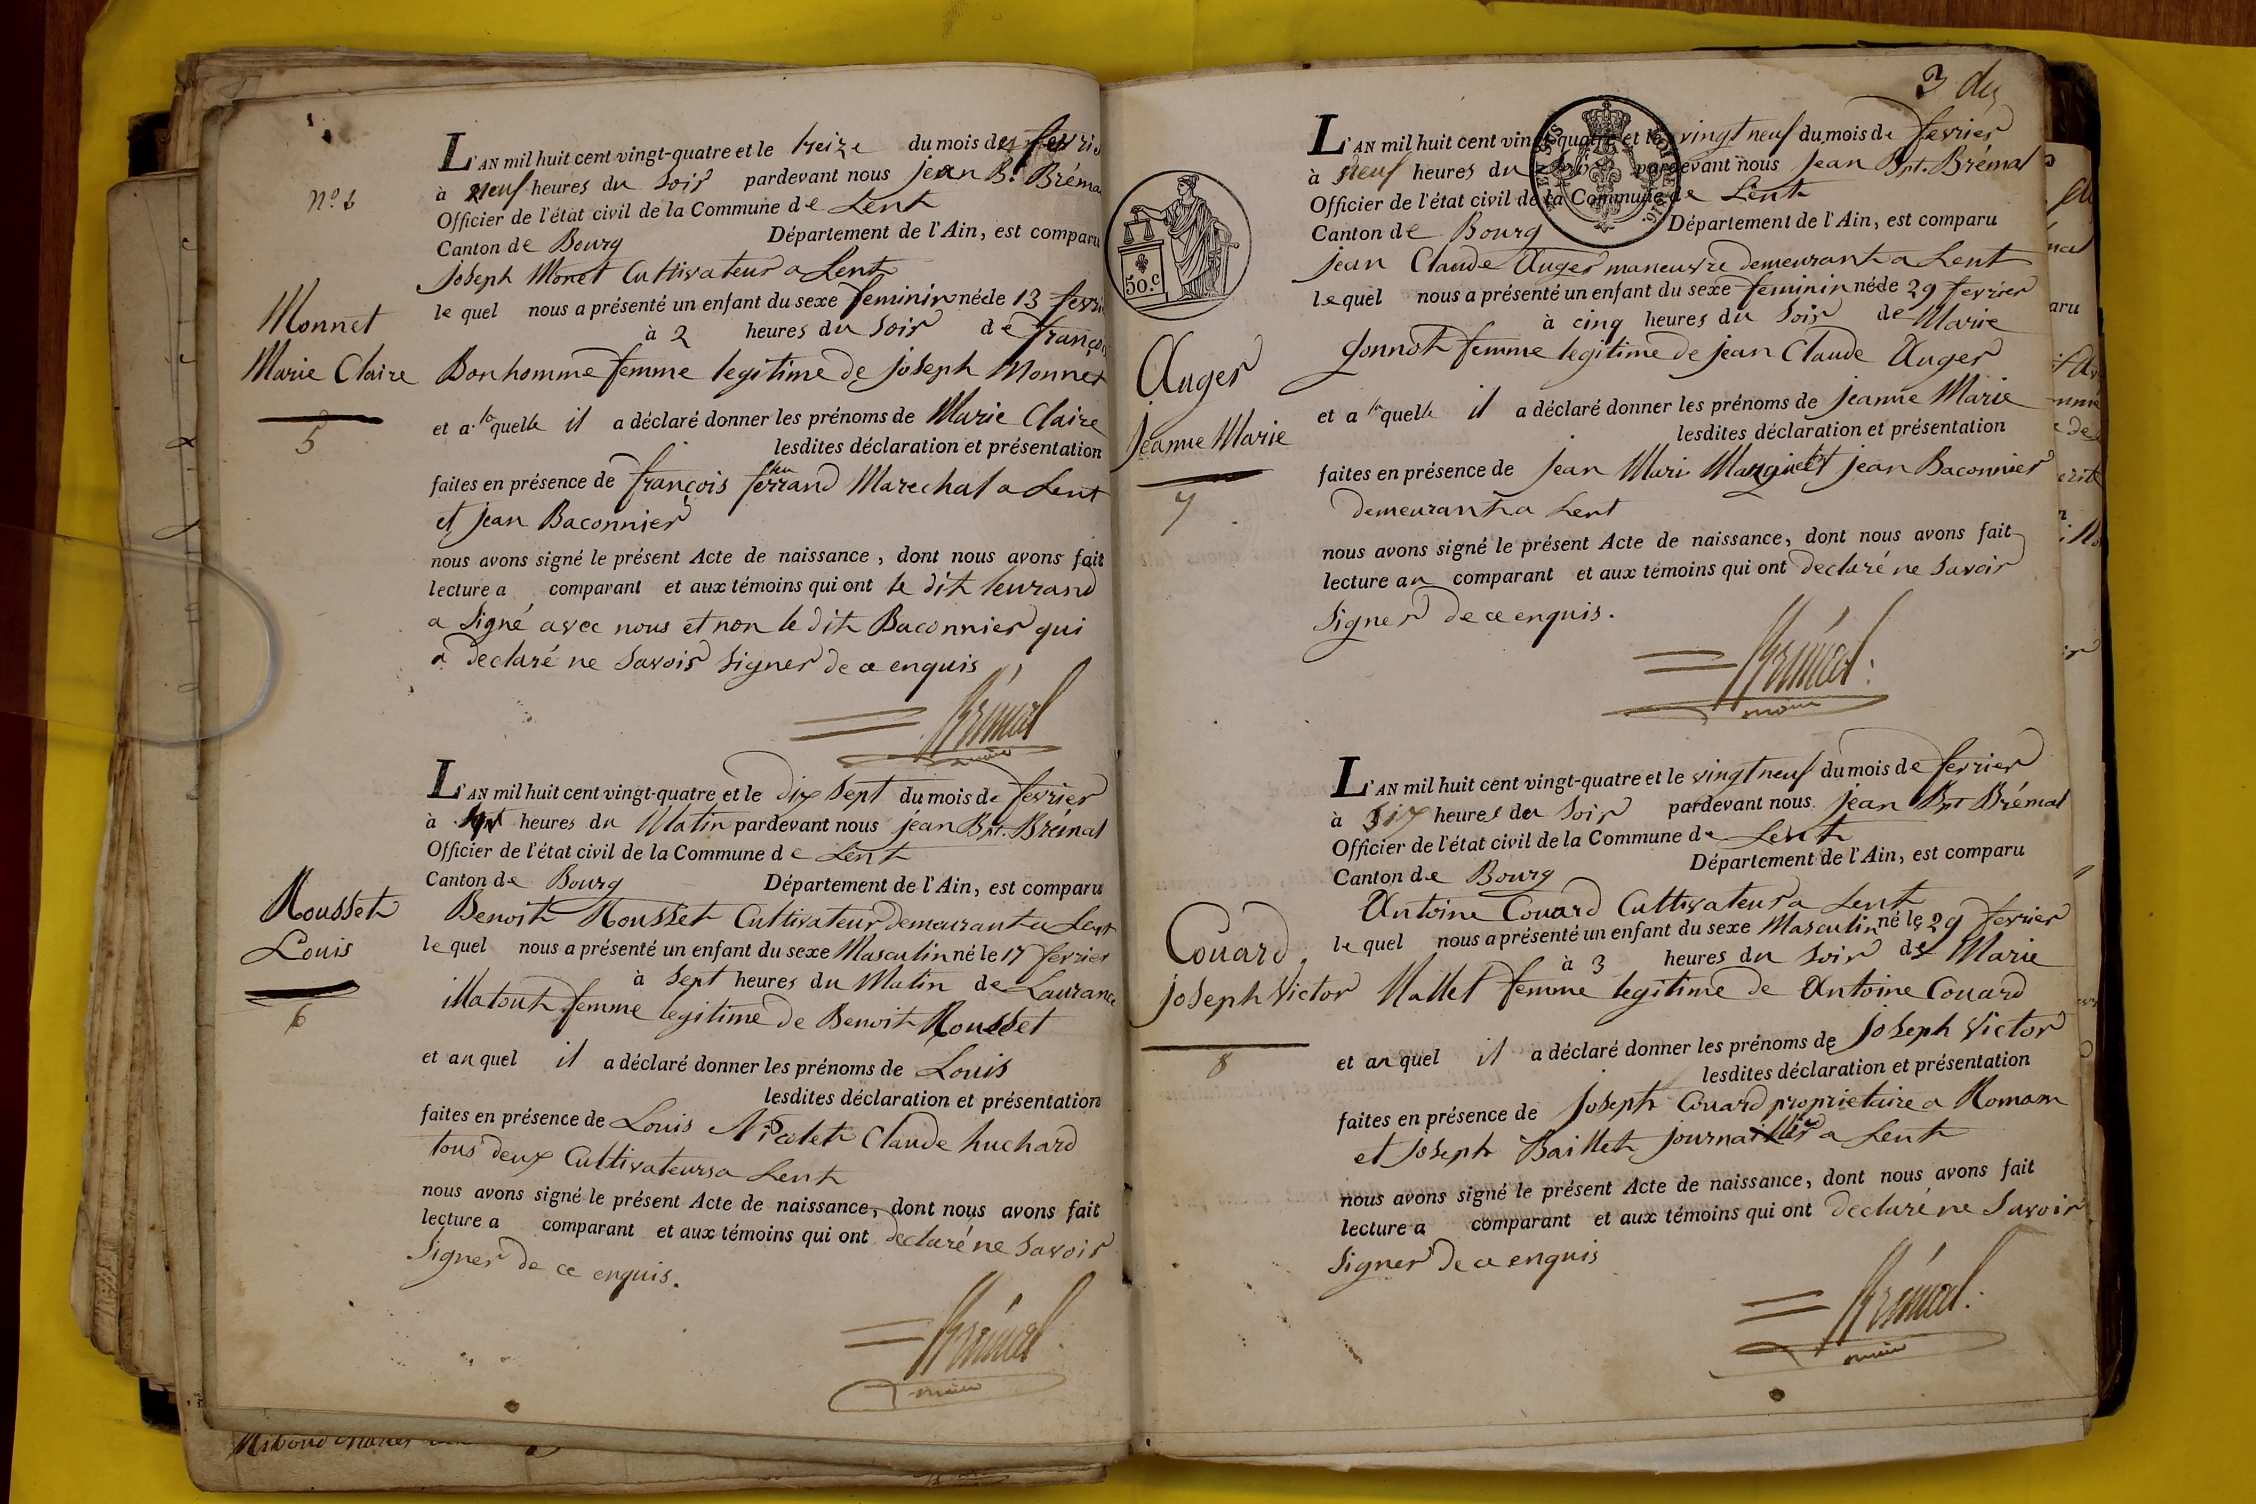 L'AN mil huit cent vingt-quatre et le treize du mois de fevrie
à Neuf heures du Soir pardevant nous jean B. Bréma
Officier de l'état civil de la Commune de Lent
Canton de Bourg Département de l'Ain, est comparu
Joseph Monet Cultivateur a Lent
le quel nous a présenté un enfant du sexe feminin née le 13 fevri
à 2 heures du Soir de françoi
Bonhomme femme legitime de joseph Monnet
et a laquelle il a déclaré donner les prénoms de Marie Claire
lesdites déclaration et présentation
faites en présence de françois Marechal a Lent
et jean Baconnier
nous avons signé le présent Acte de naissance, dont nous avons fait
lecture a comparant et aux témoins qui ont le dit
a Signé avec nous et non le dit Baconnier qui
a declaré ne Savoir Signer de ce enquis
Brémal
maire
Monnet
Marie Claire
5
L'AN mil huit cent vingt-quatre et le dix Sept du mois de fevrier
à heures du Matin pardevant nous jean Bpt. Brémal
Officier de l'état civil de la Commune de Lent
Canton de Bourg Département de l'Ain, est comparu
Benoit Rousset Cultivateur demeurant a Lent
le quel nous a présenté un enfant du sexe Masculin né le 17 fevrier
à Sept heures du Matin de Laurance
femme legitime de Benoit Rousset
et au quel il a déclaré donner les prénoms de Louis
lesdites déclaration et présentation
faites en présence de Louis Nicolet Claude huchard
tous deux Cultivateurs a Lent
nous avons signé le présent Acte de naissance, dont nous avons fait
lecture a comparant et aux témoins qui ont declaré ne Savoir
Signer de ce enquis.
Brémal
maire
Rousset
Louis
6
L'AN mil huit cent vingt-quatre et le vingt neuf du mois de fevrier
à Neuf heures du Soir pardevant nous jean Bpt. Brémal
Officier de l'état civil de la Commune de Lent
Canton de Bourg Département de l'Ain, est comparu
jean Claude Auger maneuvre demeurant a Lent
le quel nous a présenté un enfant du sexe feminin née le 29 fevrier
à cinq heures du Soir de Marie
Gonnot femme legitime de jean Claude Auger
et a laquelle il a déclaré donner les prénoms de jeanne Marie
lesdites déclaration et présentation
faites en présence de jean Mari et jean Baconnier
demeurant a Lent
nous avons signé le présent Acte de naissance, dont nous avons fait
lecture au comparant et aux témoins qui ont declaré ne Savoir
Signer de ce enquis.
Brémal
maire
50.c
Auger
Jeanne Marie
7
L'AN mil huit cent vingt-quatre et le vingt neuf du mois de fevrier
à Six heures du Soir pardevant nous jean Bpt Brémal
Officier de l'état civil de la Commune de Lent
Canton de Bourg Département de l'Ain, est comparu
Antoine Couard Cultivateur a Lent
le quel nous a présenté un enfant du sexe Masculin né le 29 fevrier
à 3 heures du Soir de Marie
Mallet femme legitime de Antoine Couard
et au quel il a déclaré donner les prénoms de joseph Victor
lesdites déclaration et présentation
faites en présence de joseph Couard proprietaire a
et joseph Baillet journallier a Lent
nous avons signé le présent Acte de naissance, dont nous avons fait
lecture a comparant et aux témoins qui ont declaré ne Savoir
Signer de ce enquis
Brémal
maire
Couard
joseph Victor
8